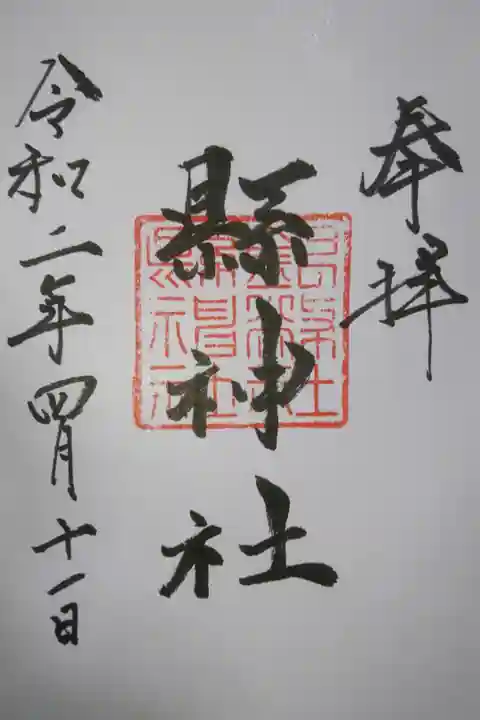 奉拝
縣神社
令和二年四月十一日